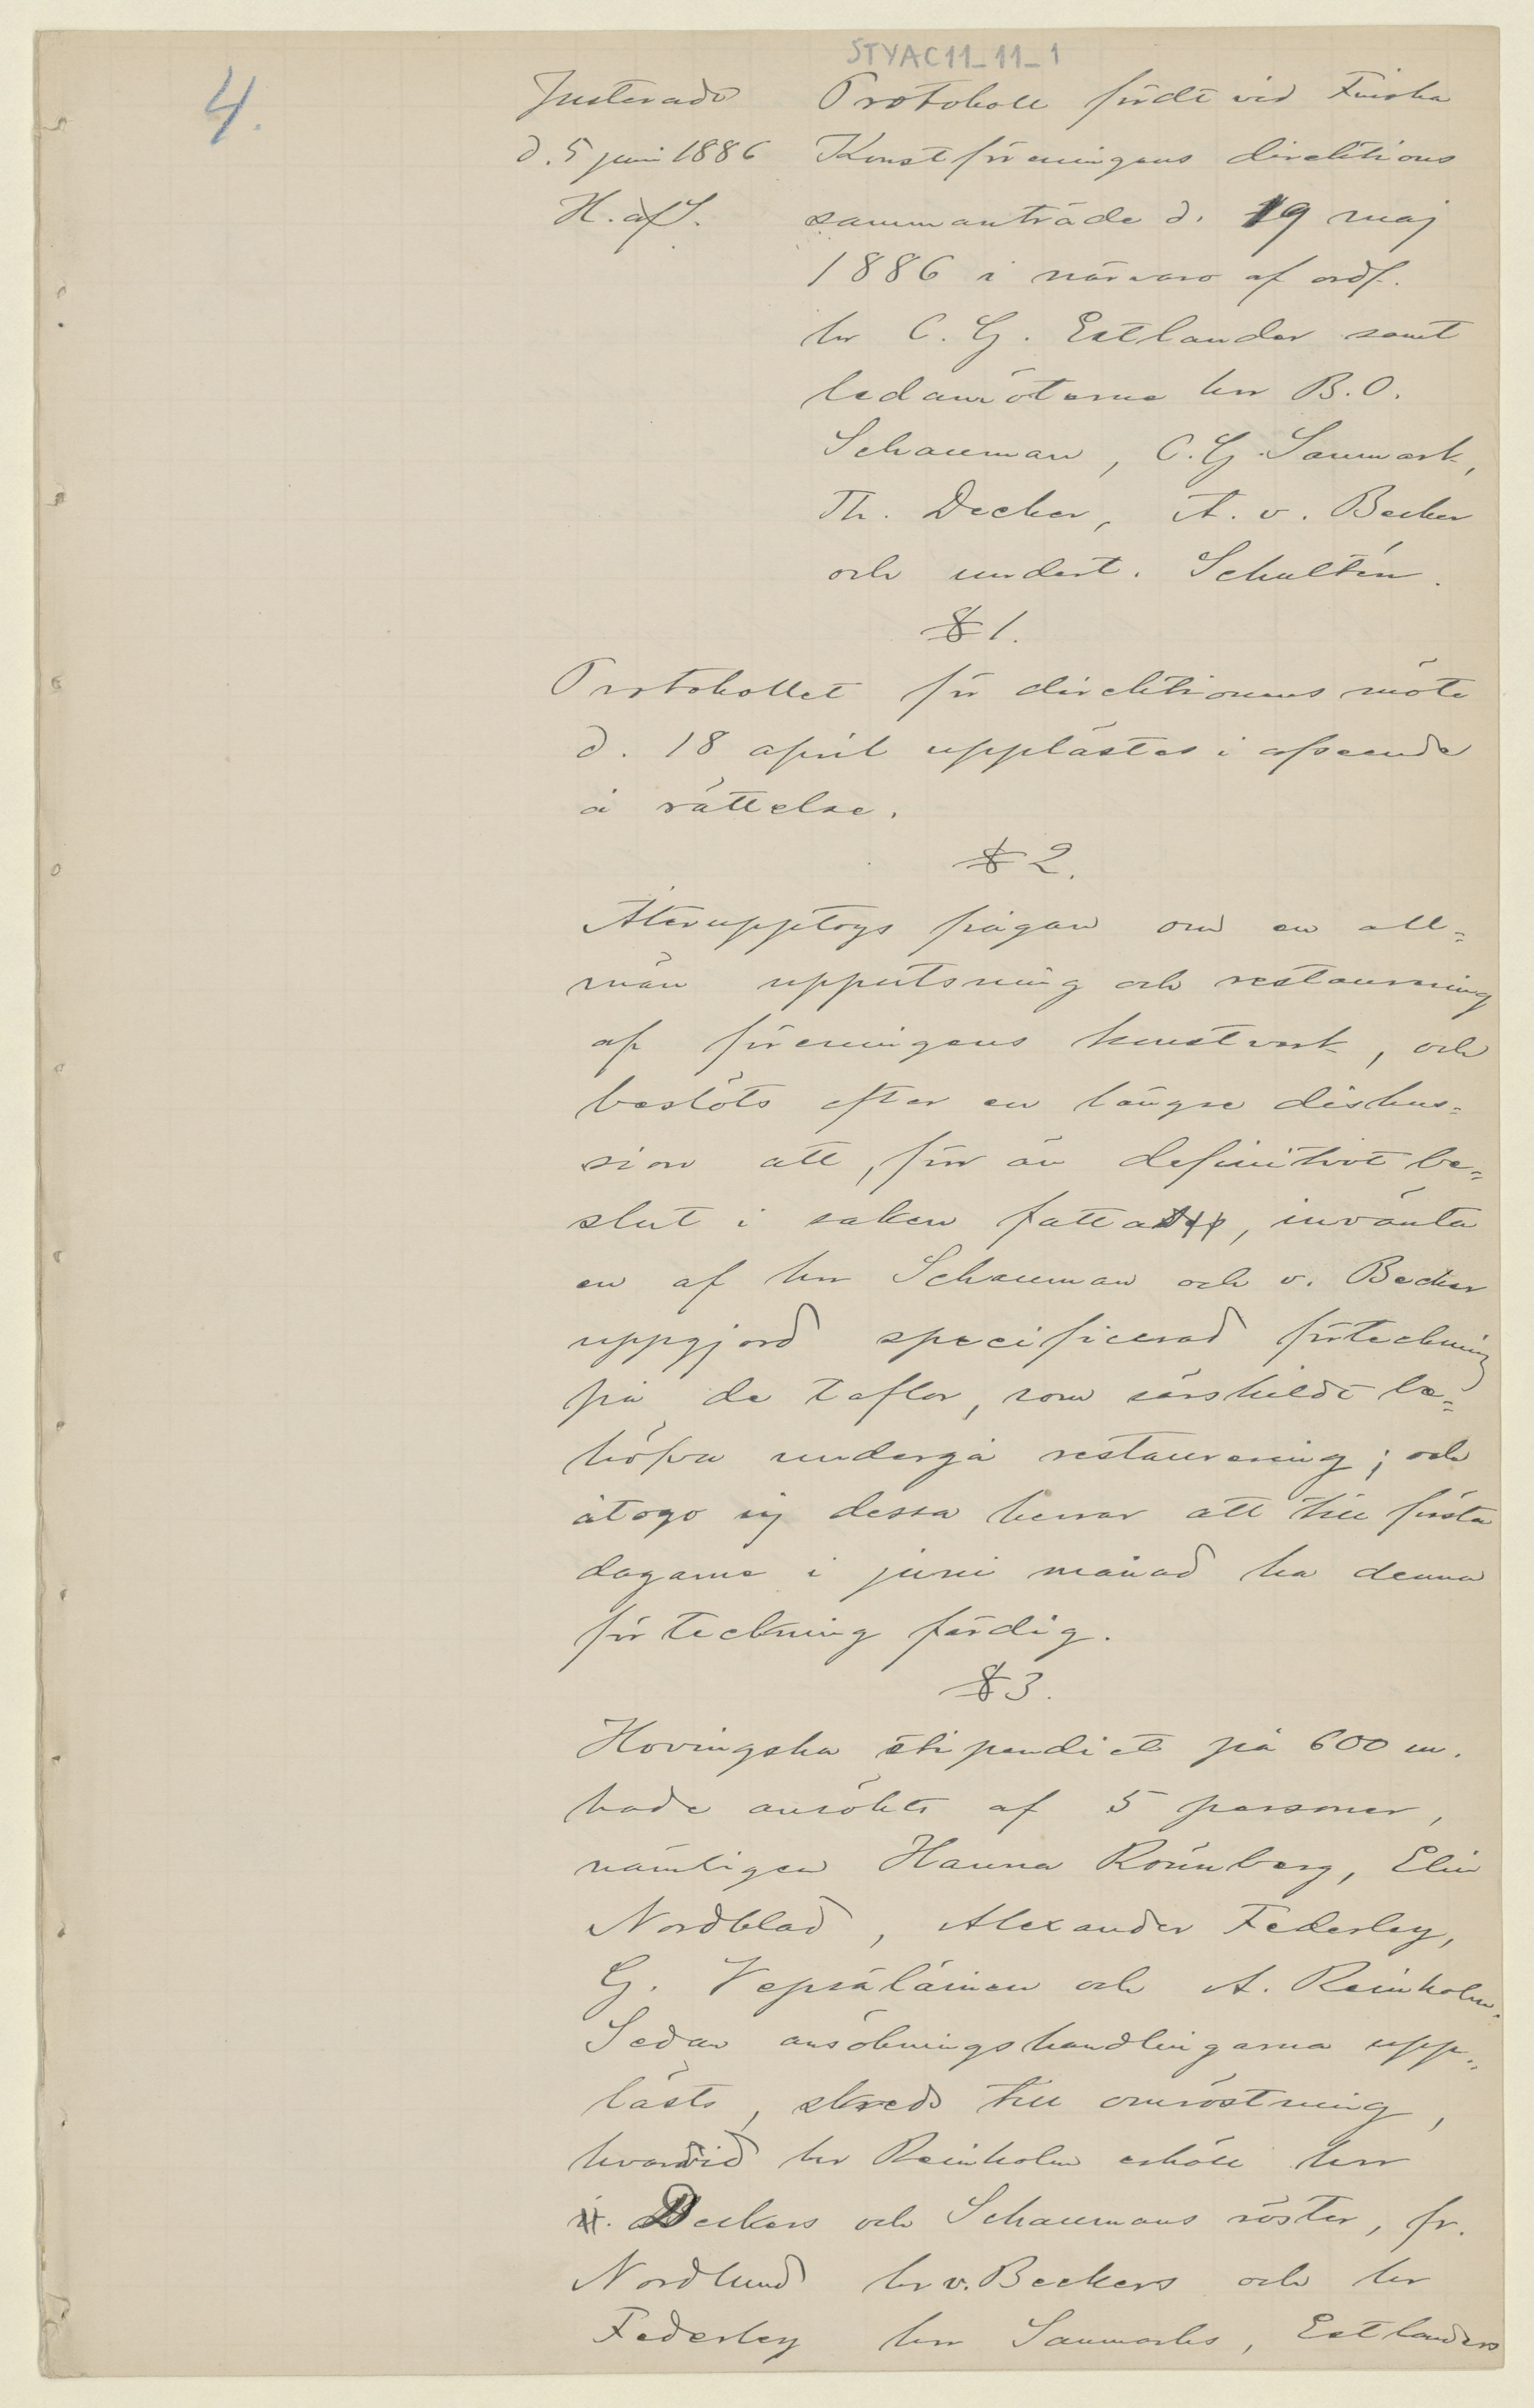 STYAC11_11_1
4.
Justerade
d. 5 juni 1886
H. af S.
Protokoll fördt vid Finska
Konstföreningens direktions
sammanträde d. 19 maj
1886 i närvaro af ordf.
hr C. G. Estlander samt
ledamöterne hrr B. O.
Schauman, C. G. Sanmark,
Th. Decker, A. v. Becker
och undert. Schultén.
§ 1.
Protokollet för direktionens möte
d. 18 april upplästes i afseende
å rättelse.
§ 2.
Återupptogs frågan om en all=
män upputsning och restaurering
af föreningens konstverk, och
beslöts efter en längre diskus=
sion att, förr än definitivt be=
slut i saken fattas, invänta
en af hrr Schauman och v. Becker
uppgjord specificerad förteckning
på de taflor, som särskildt be=
höfva undergå restaurering; och
åtogo sig dessa herrar att till första
dagarne i juni månad ha denna
förteckning färdig.
§ 3.
Hovingska stipendiet på 600 m.
hade ansökts af 5 personer,
nämligen Hanna Rönnberg, Elin
Nordblad, Alexander Federley,
G. Vepsäläinen och A. Reinholm.
Sedan ansökningshandlingarna upp=
lästs, skreds till omröstning,
hvarvid hr Reinholm erhöll hrr
Deckers och Schaumans röster, fr.
Nordlund hr v. Beckers och hr
Federley hrr Sanmarks, Estlanders